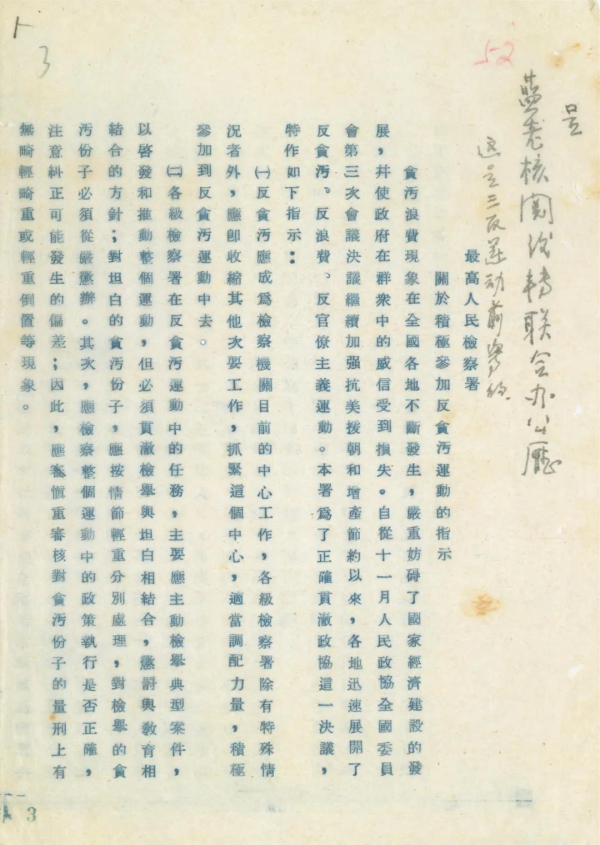 3
52
呈
蓝老核阅后转联合办公厅
这是三反运动前发的
最高人民檢察署
關於積極參加反貪汚運動的指示
貪汚浪費現象在全國各地不斷發生，嚴重妨碍了國家經濟建設的發
展，幷使政府在群衆中的威信受到損失。自從十一月人民政協全國委員
會第三次會議決議繼續加强抗美援朝和增產節約以來，各地迅速展開了
反貪汚。反浪費。反官僚主義運動。本署爲了正確貫澈政協這一決議，
特作如下指示：
㈠反貪汚應成爲檢察機關目前的中心工作，各級檢察署除有特殊情
況者外，應卽收縮其他次要工作，抓緊這個中心，適當調配力量，積極
參加到反貪汚運動中去。
㈡各級檢察署在反貪汚運動中的任務，主要應主動檢舉典型案件，
以啓發和推動整個運動，但必須貫澈檢舉與坦白相結合，懲罰與敎育相
結合的方針；對坦白的貪汚份子，應按情節輕重分別處理，對檢舉的貪
汚份子必須從嚴懲辦。其次，應檢察整個運動中的政策執行是否正確，
注意糾正可能發生的偏差；因此，應審愼重審核對貪汚份子的量刑上有
無畸輕畸重或輕重倒置等現象。
3